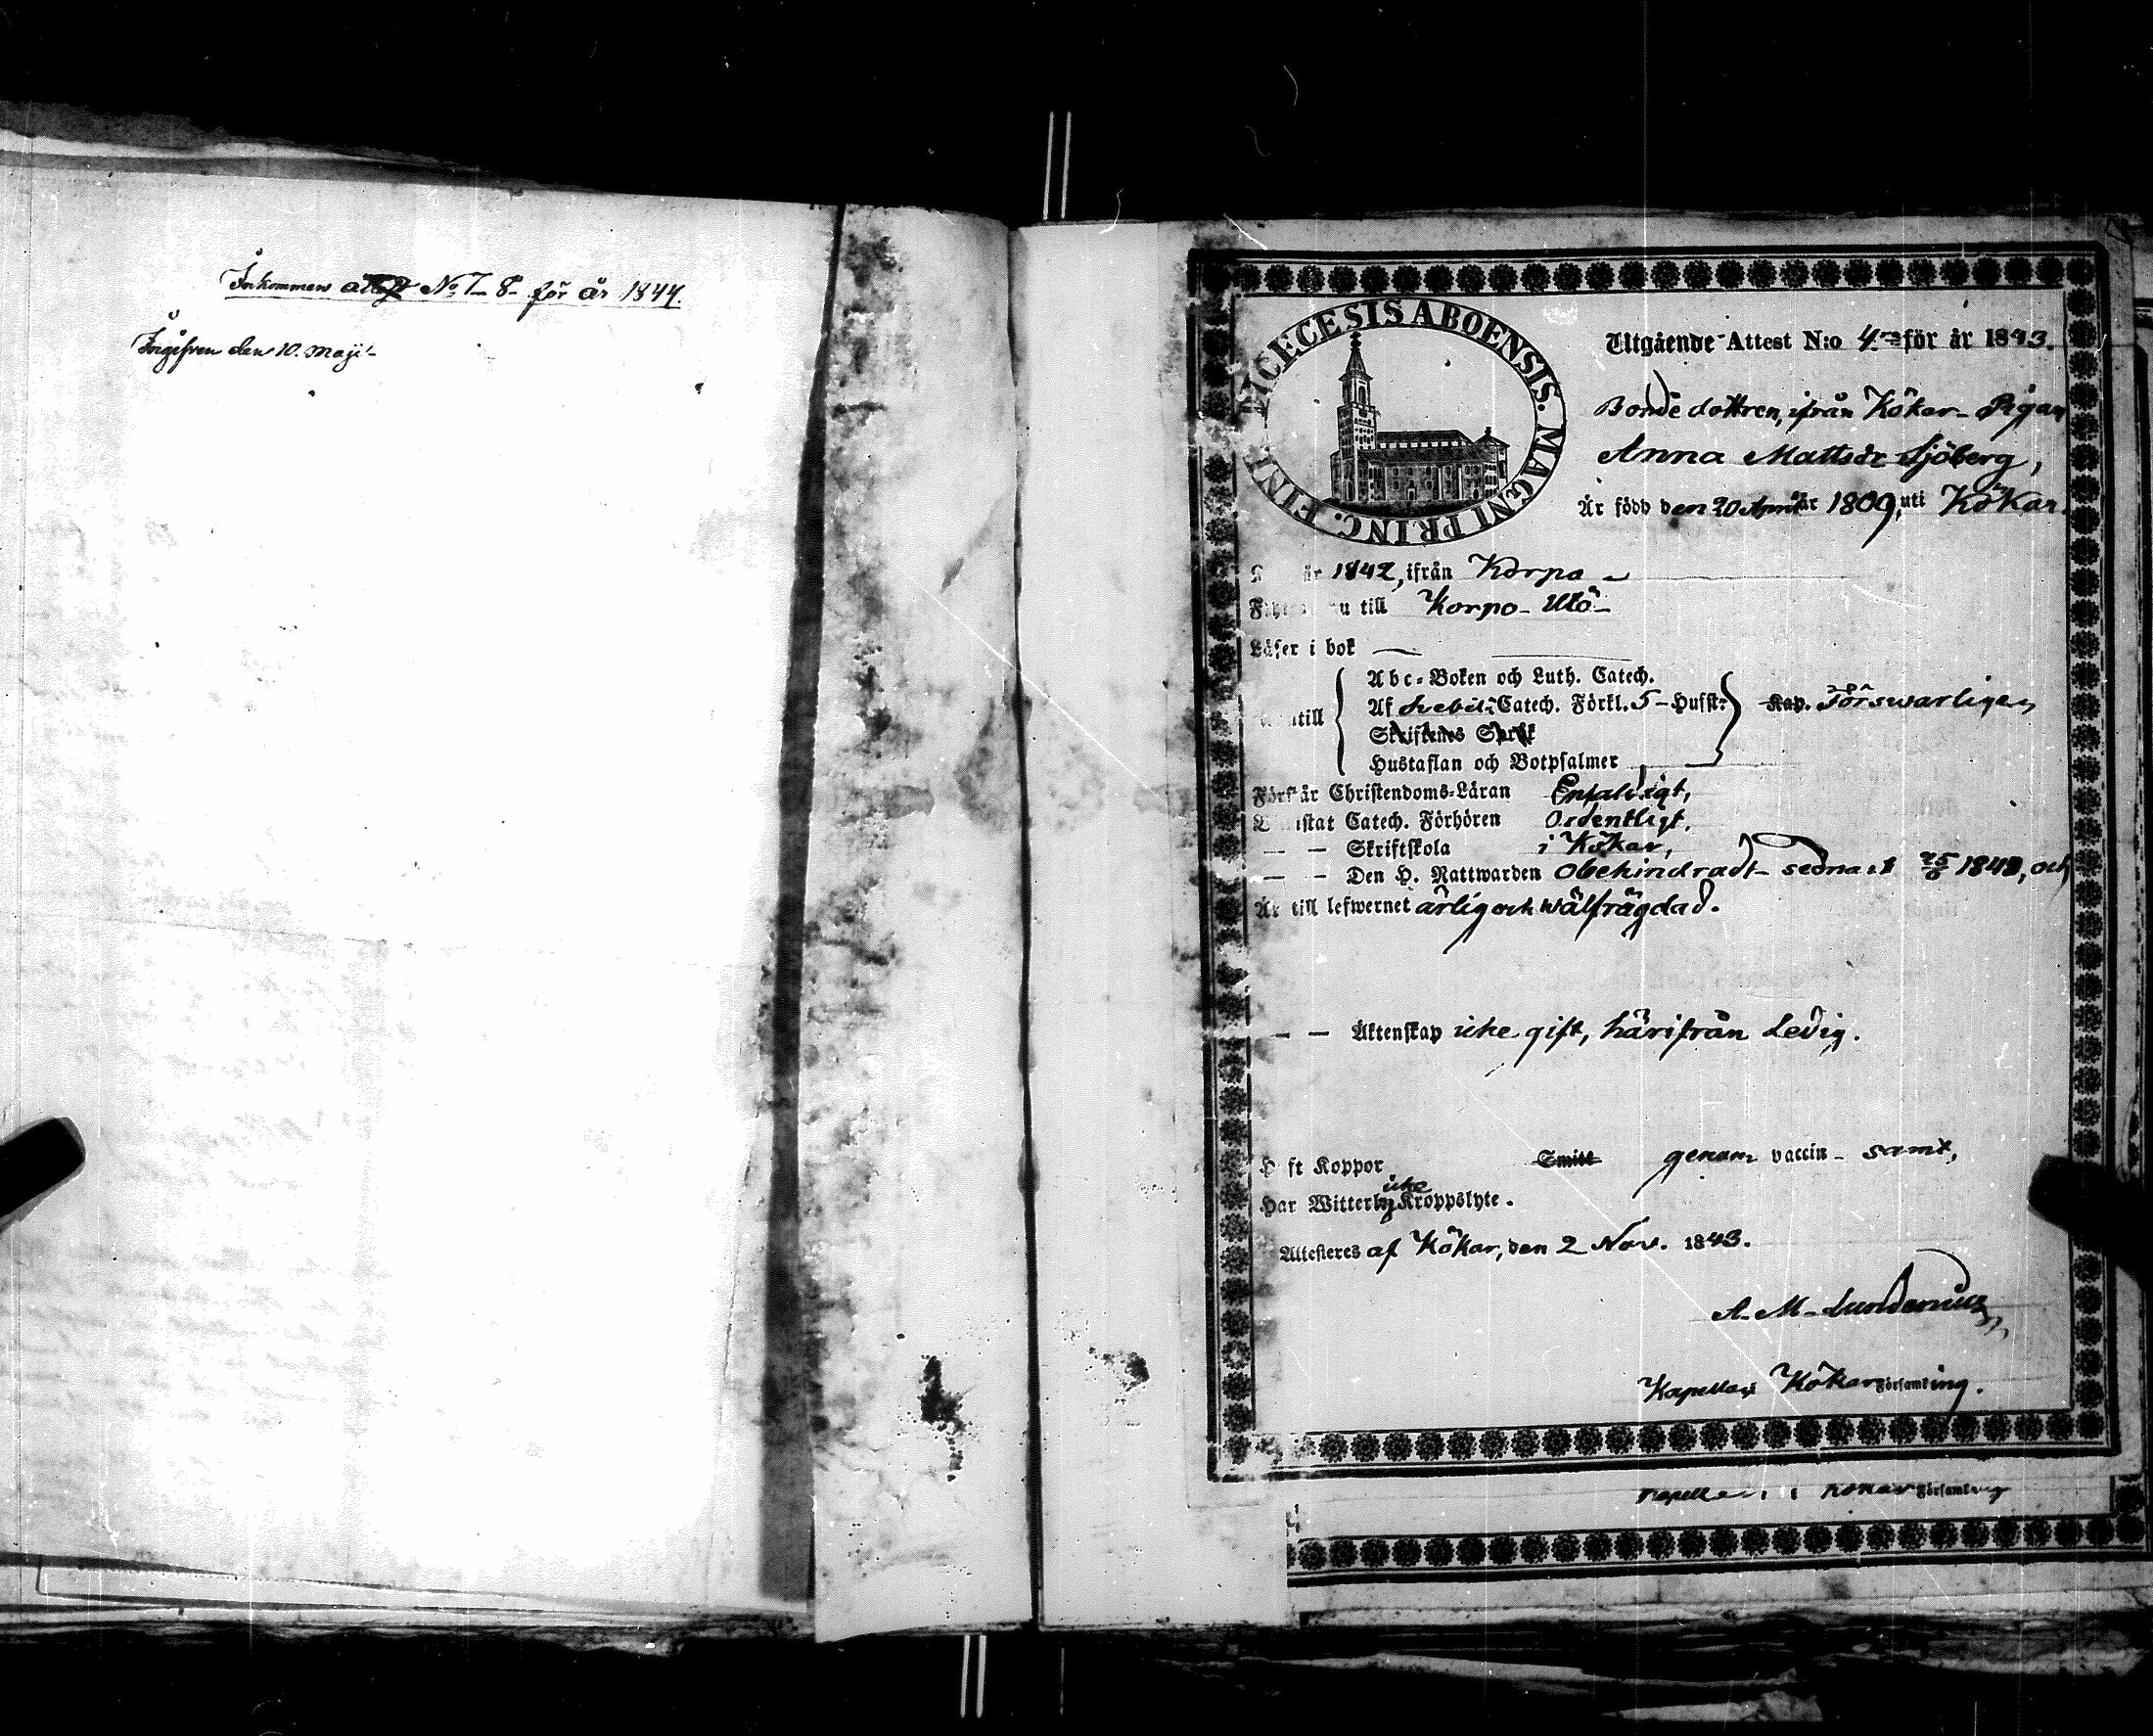 Inkommen attest No 7-8- för år 1844.
Ingifven den 10. Maji-
DIOECESIS ABOENSIS. MAGNI PRINC. FINL.
Utgående Attest N:o 4. för år 1843.
Bonde dottren, ifrån Kökar- Pigan
Anna Mattsdr Sjöberg,
Är född den 20 April år 1809, uti Kökar.
år 1842, ifrån Korpo -
nu till Korpo- Utö-
Läser i bok
Abc-Boken och Luth. Catech.
till Af Svebil: Catech. Förkl. 5- Husst: Kap. Försvarligen
Skriftenes Språk
Hustaflan och Botpsalmer
Förstår Christendoms-Läran Enfaldigt,
Catech. Förhören Ordentligt,
— — Skriftskola i Kökar,
— — Den H. Nattwarden Obehindradt- sednast 1843, och
Är till lefwernet ärlig och wälfrägdad.
— — Äktenskap icke gift, härifrån Ledig.
Haft Koppor Smitt genom vaccin- samt,
icke
Har Witterlig Kroppslyte.
Attesteres af Kökar, den 2 Nov. 1843.
A. M. Lundenius
Kapellan i Kökar Församling.
Kapellan i Kökar Församling